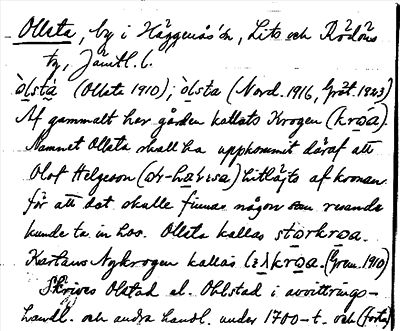 Ollsta, by i Häggenås sn, Lits och Rödöns
tg, Jämtl. l.
 òlsta (Ollsta 1910); òlsta (Nord. 1916, Gråt. 1923)
Af gammalt har gården kallats Krogen (kroa).
Namnet Ollsta skall ha uppkommit däraf att
Olof Helgeson hitlöjts af kronan
för att det skulle finnas någon som resande
kunde ta in hos. Ollsta kallas storkroa.
Kartans Nykrogen kallas kroa. (Gren. 1910)
Skrives Olstad el. Ohlstad i avvittrings-
handl. och andra handl. under 1700-t. och (forts)